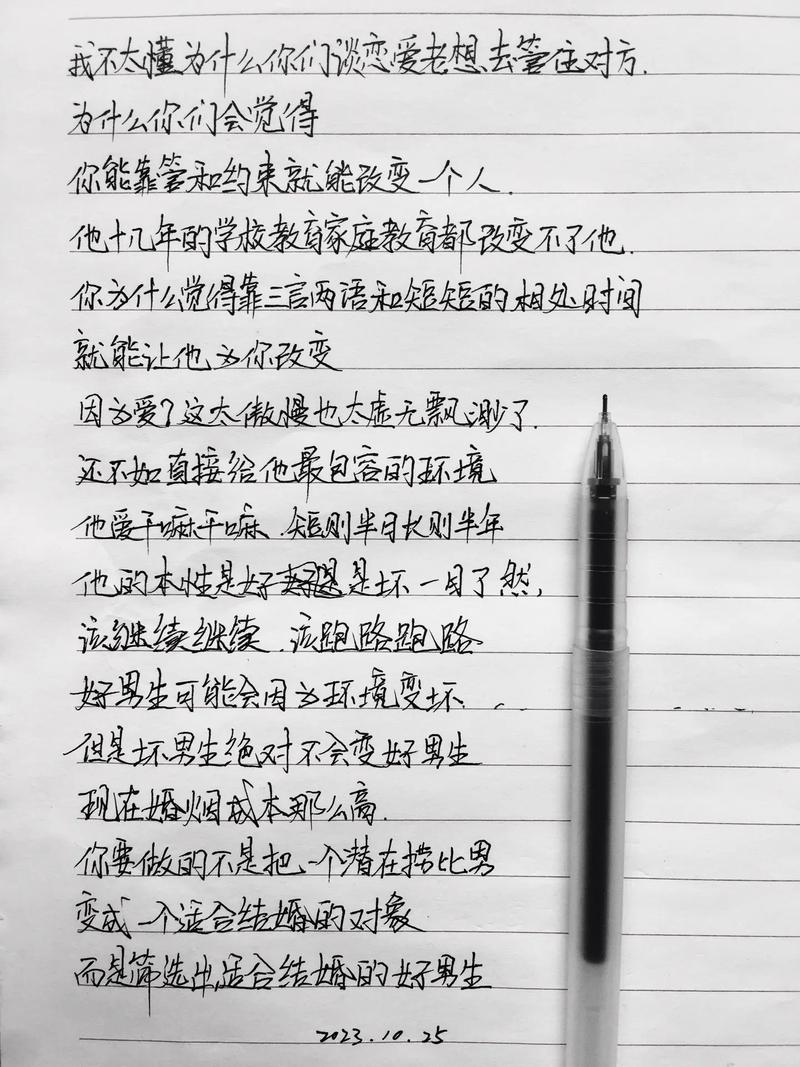 我不太懂为什么你们谈恋爱老想去管住对方.
为什么你们会觉得
你能靠管和约束就能改变一个人.
他十几年的学校教育家庭教育都改变不了他.
你为什么觉得靠三言两语和短短的相处时间
就能让他为你改变
因为爱?这太傲慢也太虚无飘渺了.
还不如直接给他最包容的环境
他爱干嘛干嘛.短则半月长则半年
他的本性是好是坏一目了然,
该继续继续.该跑路跑路
好男生可能会因为环境变坏...
但是坏男生绝对不会变好男生
现在婚烟成本那么高.
你要做的不是把一个潜在捞比男
变成一个适合结婚的对象
而是筛选出适合结婚的好男生
2023.10.25